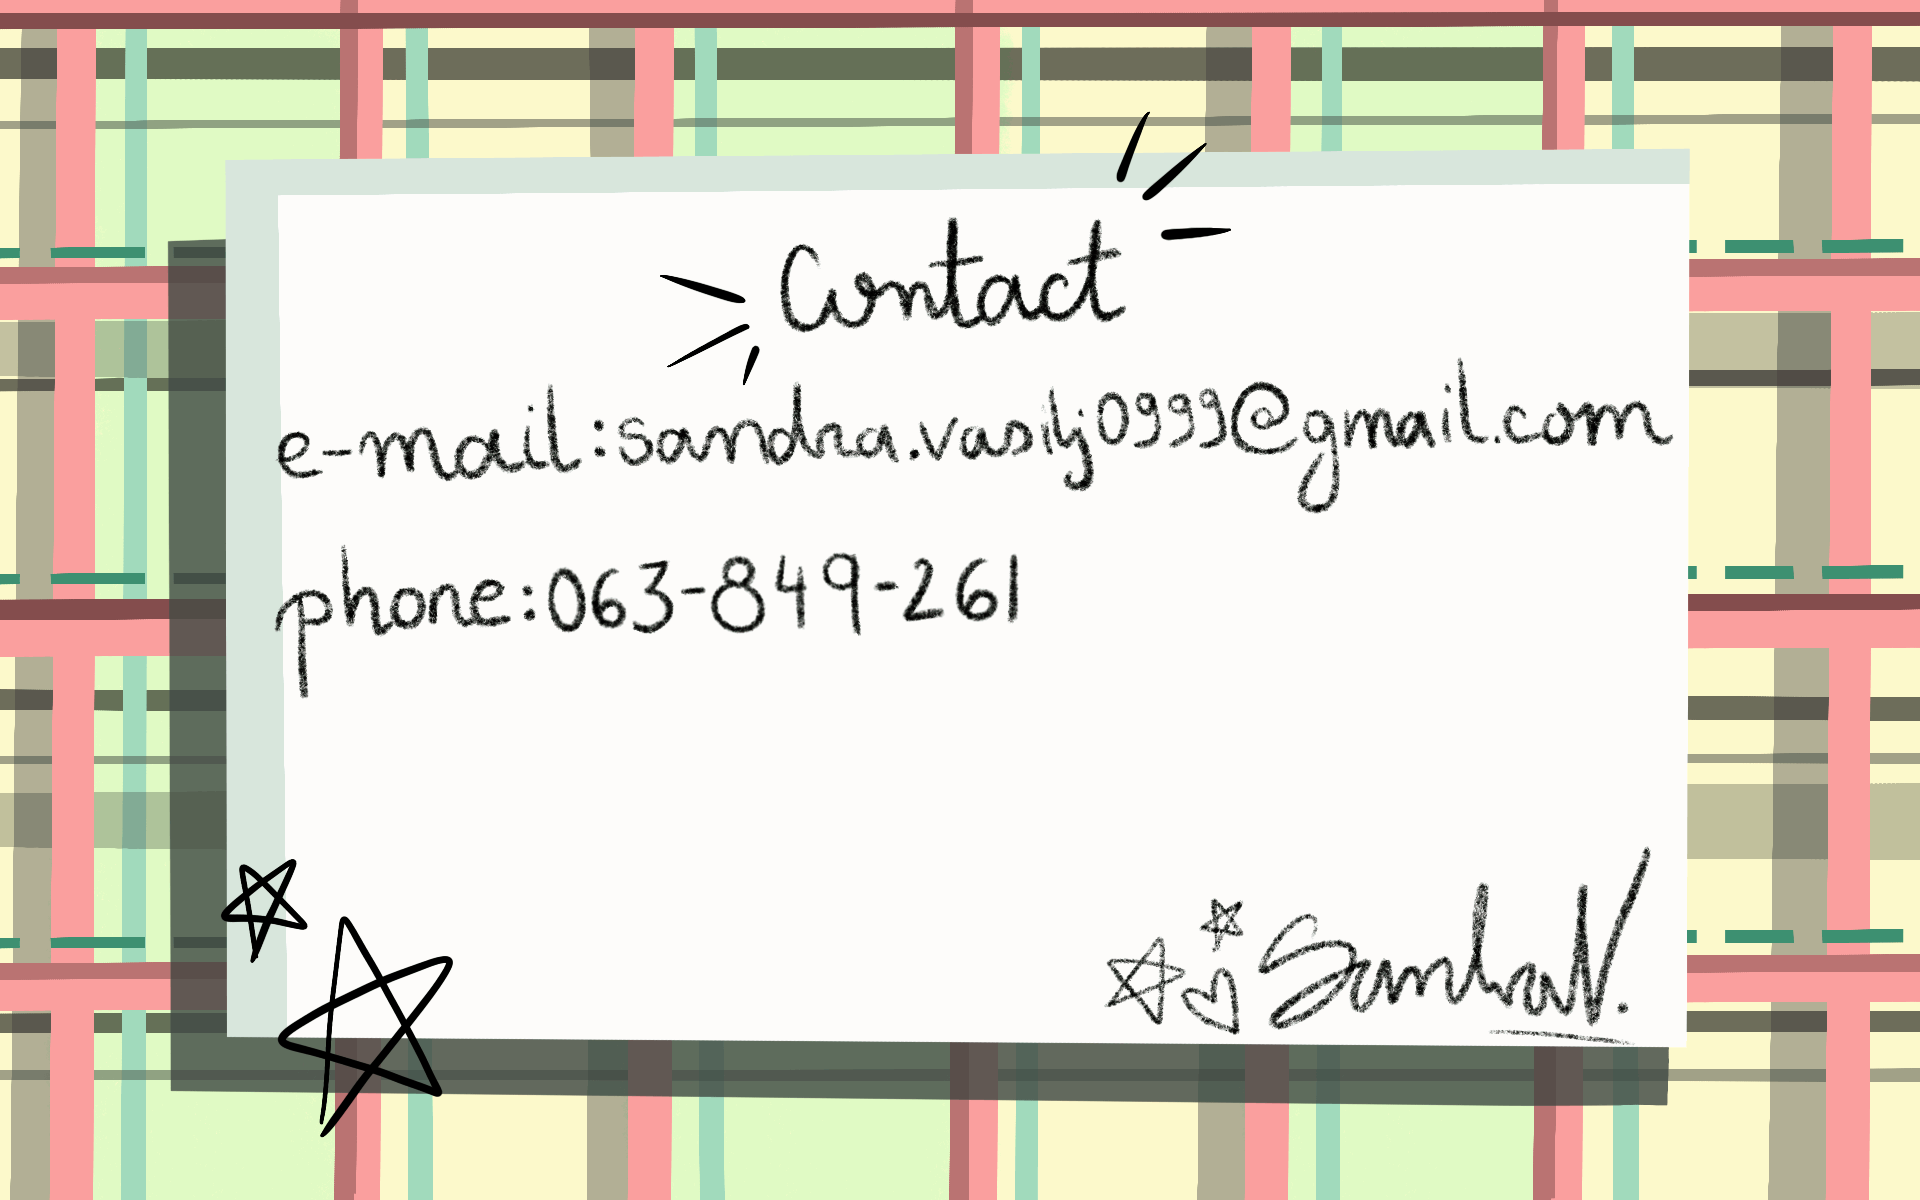 Contact
e-mail:sandra.vasilj0999@gmail.com
phone:063-849-261
SandraV.